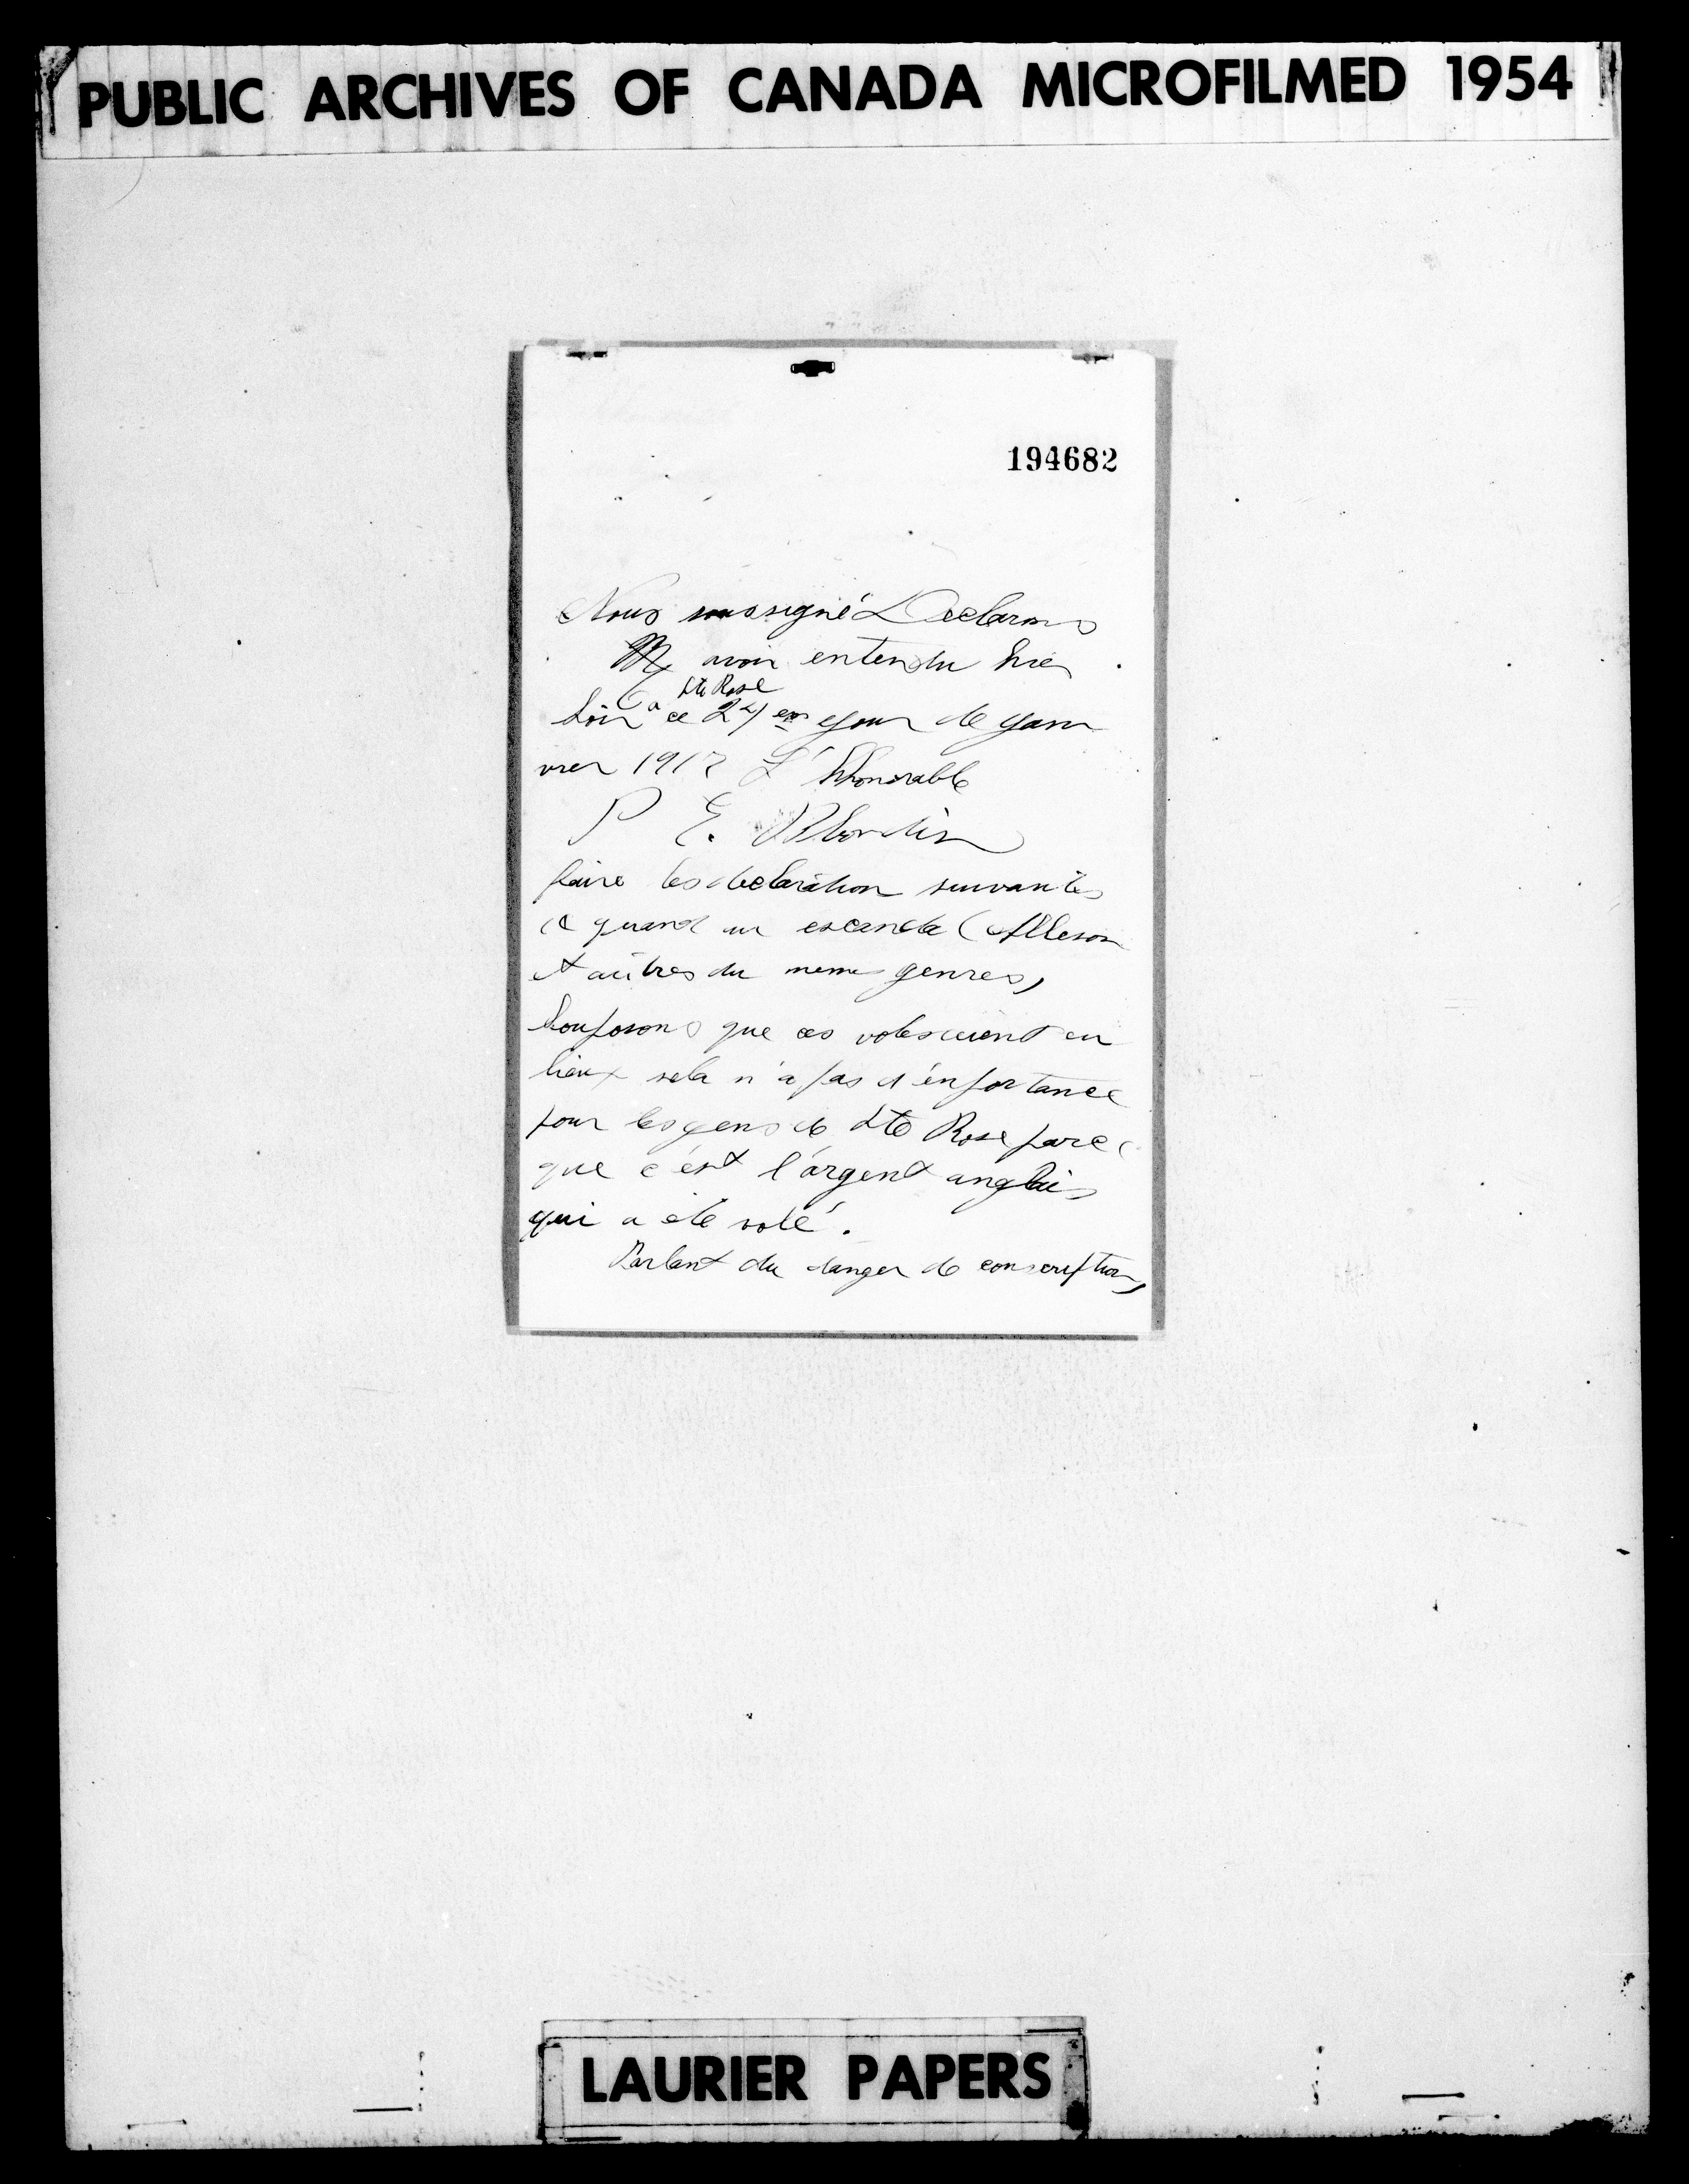 PUBLIC ARCHIVES OF CANADA MICROFILMED 1954
194682
Nous soussigné Declarons
avoir entendu hier
Ste Rose
Soir a ce 24 em jour de Jann
vier 1917 L'Hhonorable
P. E. Blondin
faire les declaration suivantes
quand au escandale (Alleson
et autres du meme genres,
Souposons que ces voles aient eu
lieux sela n'a pas d'enportance
pour les gens de Ste Rose parce
que c'est l'argent anglais
qui a ete volé.
Parlant du danger de conscription,
LAURIER PAPERS